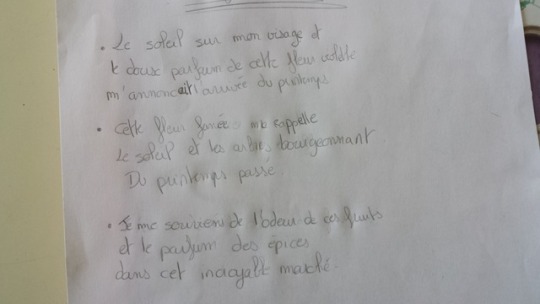 • Le soleil sur mon visage et
le doux parfum de cette fleur
m'annonçait l'arrivée du printemps
• Cette fleur fanée me rappelle
Le soleil et les arbres bourgeonnant
Du printemps passé.
• Je me souviens de l'odeur de ces fruits
et le parfum des épices
dans cet incroyable marché.